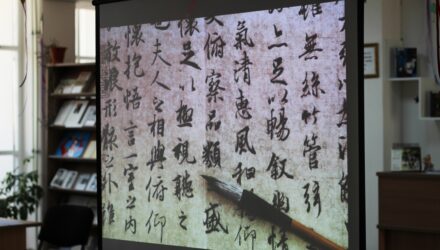 雖無絲竹管弦
亦足以暢敘幽情
氣清惠風和暢仰
大俯察品類之盛
懷足以極視聽之
也夫人之相與俯仰
懷抱悟言一室之內
放浪形骸之外雖